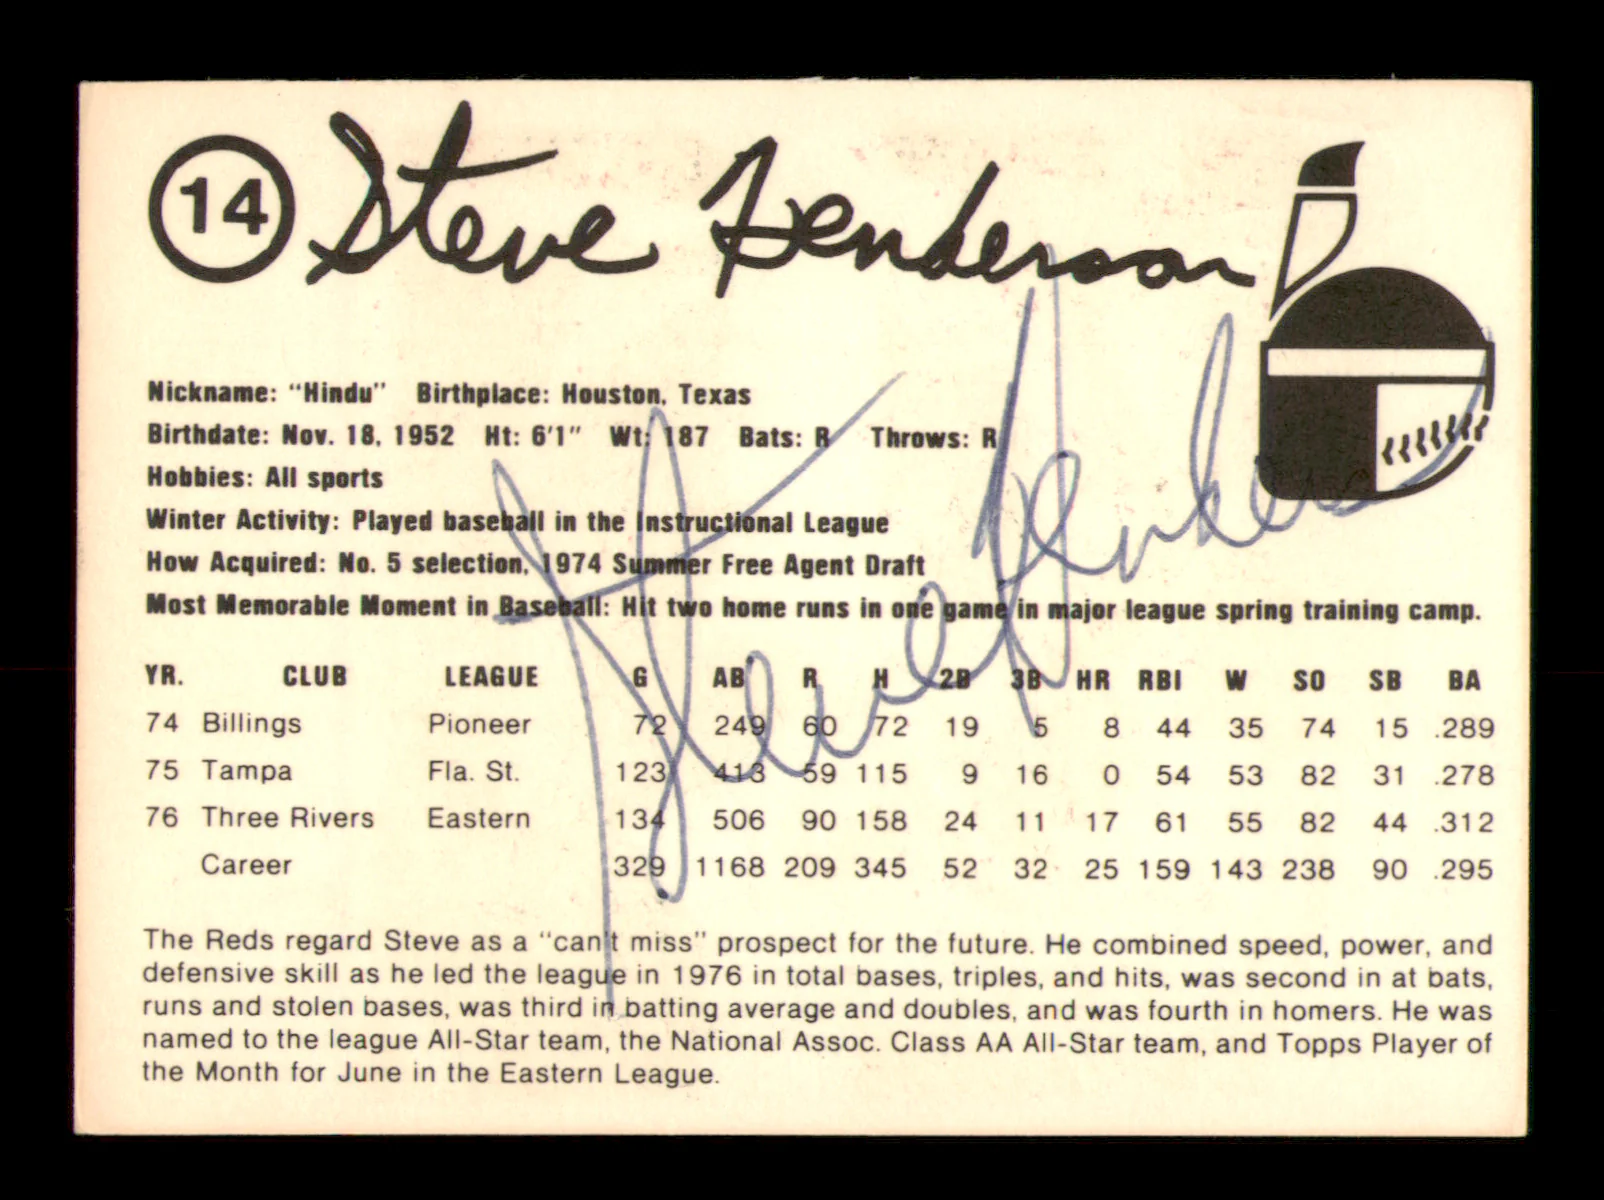 14 Steve Henderson
Nickname: "Hindu" Birthplace: Houston, Texas
Birthdate: Nov. 18, 1952 Ht: 6'1" Wt: 187 Bats: R Throws: R
Hobbies: All sports
Winter Activity: Played baseball in the Instructional League
How Acquired: No. 5 selection, 1974 Summer Free Agent Draft
Most Memorable Moment in Baseball: Hit two home runs in one game in major league spring training camp.
Steve Henderson
YR. CLUB LEAGUE G AB R H 2B 3B HR RBI W SO SB BA
74 Billings Pioneer 72 249 60 72 19 5 8 44 35 74 15 .289
75 Tampa Fla. St. 123 413 59 115 9 16 0 54 53 82 31 .278
76 Three Rivers Eastern 134 506 90 158 24 11 17 61 55 82 44 .312
Career 329 1168 209 345 52 32 25 159 143 238 90 .295
The Reds regard Steve as a "can't miss" prospect for the future. He combined speed, power, and
defensive skill as he led the league in 1976 in total bases, triples, and hits, was second in at bats,
runs and stolen bases, was third in batting average and doubles, and was fourth in homers. He was
named to the league All-Star team, the National Assoc. Class AA All-Star team, and Topps Player of
the Month for June in the Eastern League.